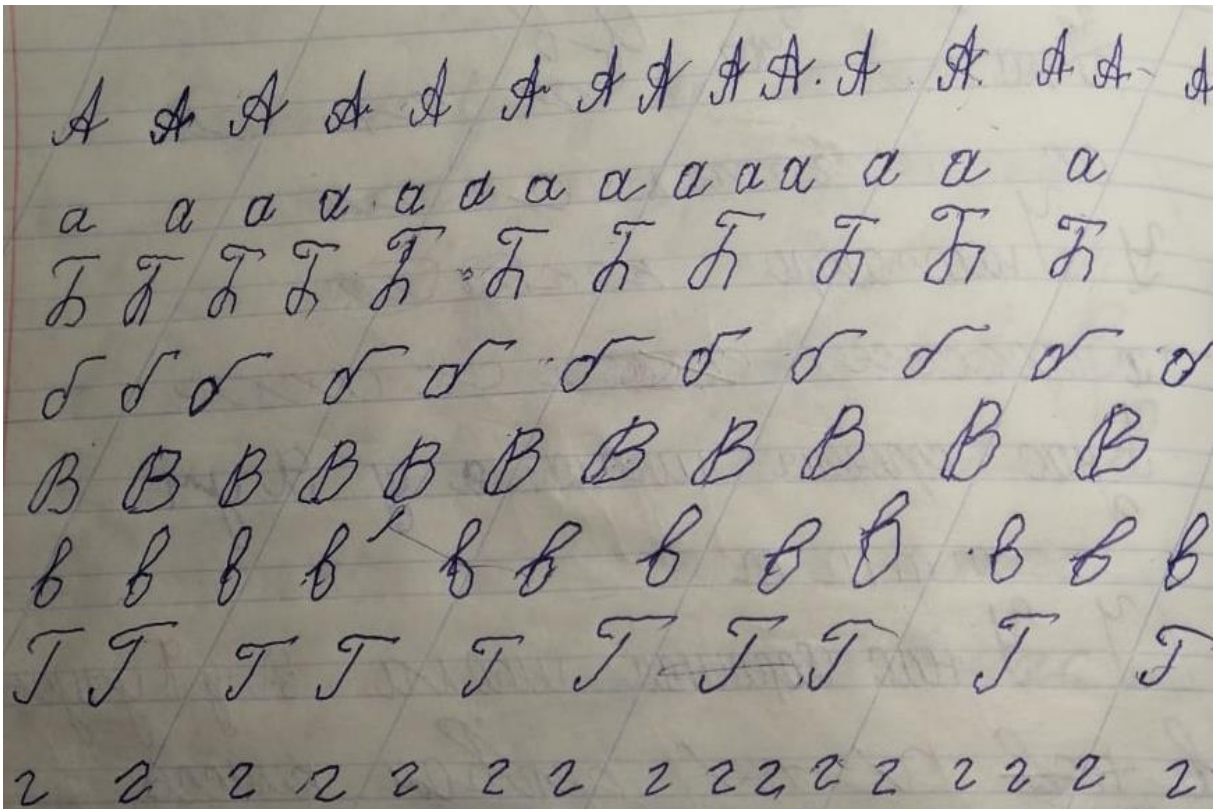 А А А А А А А А А А. А А. А А А
а а а а а а а а а а а а а а
Б Б Б Б Б Б Б Б Б Б Б
б б б б б б б б б б б
В В В В В В В В В В В
в в в в в в в в в в в в
Г Г Г Г Г Г Г Г Г Г
г г г г г г г г г г г г г г г г